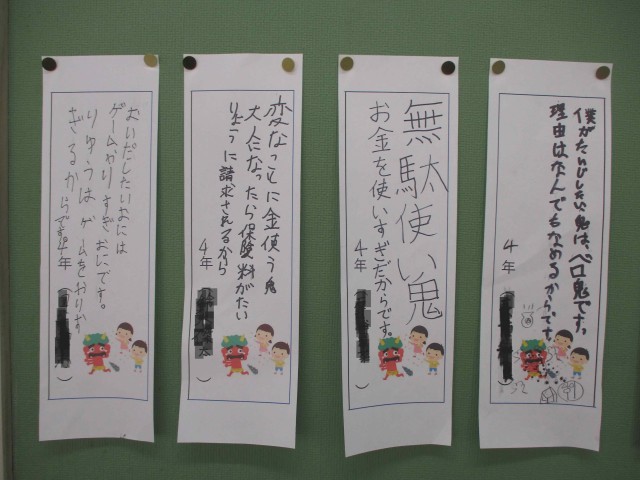 僕がたいじしたい鬼は、ベロ鬼です。
理由はなんでもなめるからです。
4年（　）
無駄使い鬼
お金を使いすぎだからです。
4年（　）
変なことに金使う鬼
大人になったら保険料がたい
りょうに請求されるから
4年（　）
おいだしたいおには
ゲームやりすぎおにです。
りゆうはゲームをやりす
ぎるからです。
4年（　）